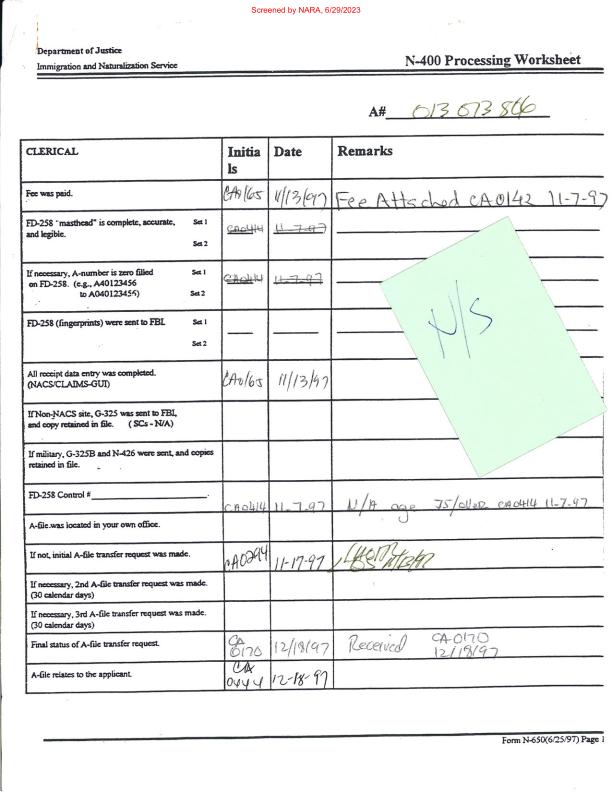 Screened by NARA, 6/29/2023
Department of Justice
Immigration and Naturalization Service
N-400 Processing Worksheet
A# 013 073 866
CLERICAL Initials Date Remarks
Fee was paid. CA0165 11/13/97 Fee Attached CA0142 11-7-97
FD-258 "masthead" is complete, accurate, Set 1 CA0414 11-7-97
and legible.
Set 2
If necessary, A-number is zero filled Set 1 CA0414 11-7-97
on FD-258. (e.g., A40123456
to A040123456) Set 2
N/S
FD-258 (fingerprints) were sent to FBI. Set 1
Set 2
All receipt data entry was completed. CA0165 11/13/97
(NACS/CLAIMS-GUI)
If Non-NACS site, G-325 was sent to FBI,
and copy retained in file. (SCs - N/A)
If military, G-325B and N-426 were sent, and copies
retained in file.
FD-258 Control # CA0414 11-7-97 N/A age 75/over CA0414 11-7-97
A-file was located in your own office.
If not, initial A-file transfer request was made. CA0294 11-17-97
If necessary, 2nd A-file transfer request was made.
(30 calendar days)
If necessary, 3rd A-file transfer request was made.
(30 calendar days)
Final status of A-file transfer request. CA 0170 12/18/97 Received CA0170
12/18/97
A-file relates to the applicant. CA 0444 12-18-97
Form N-650(6/25/97) Page 1